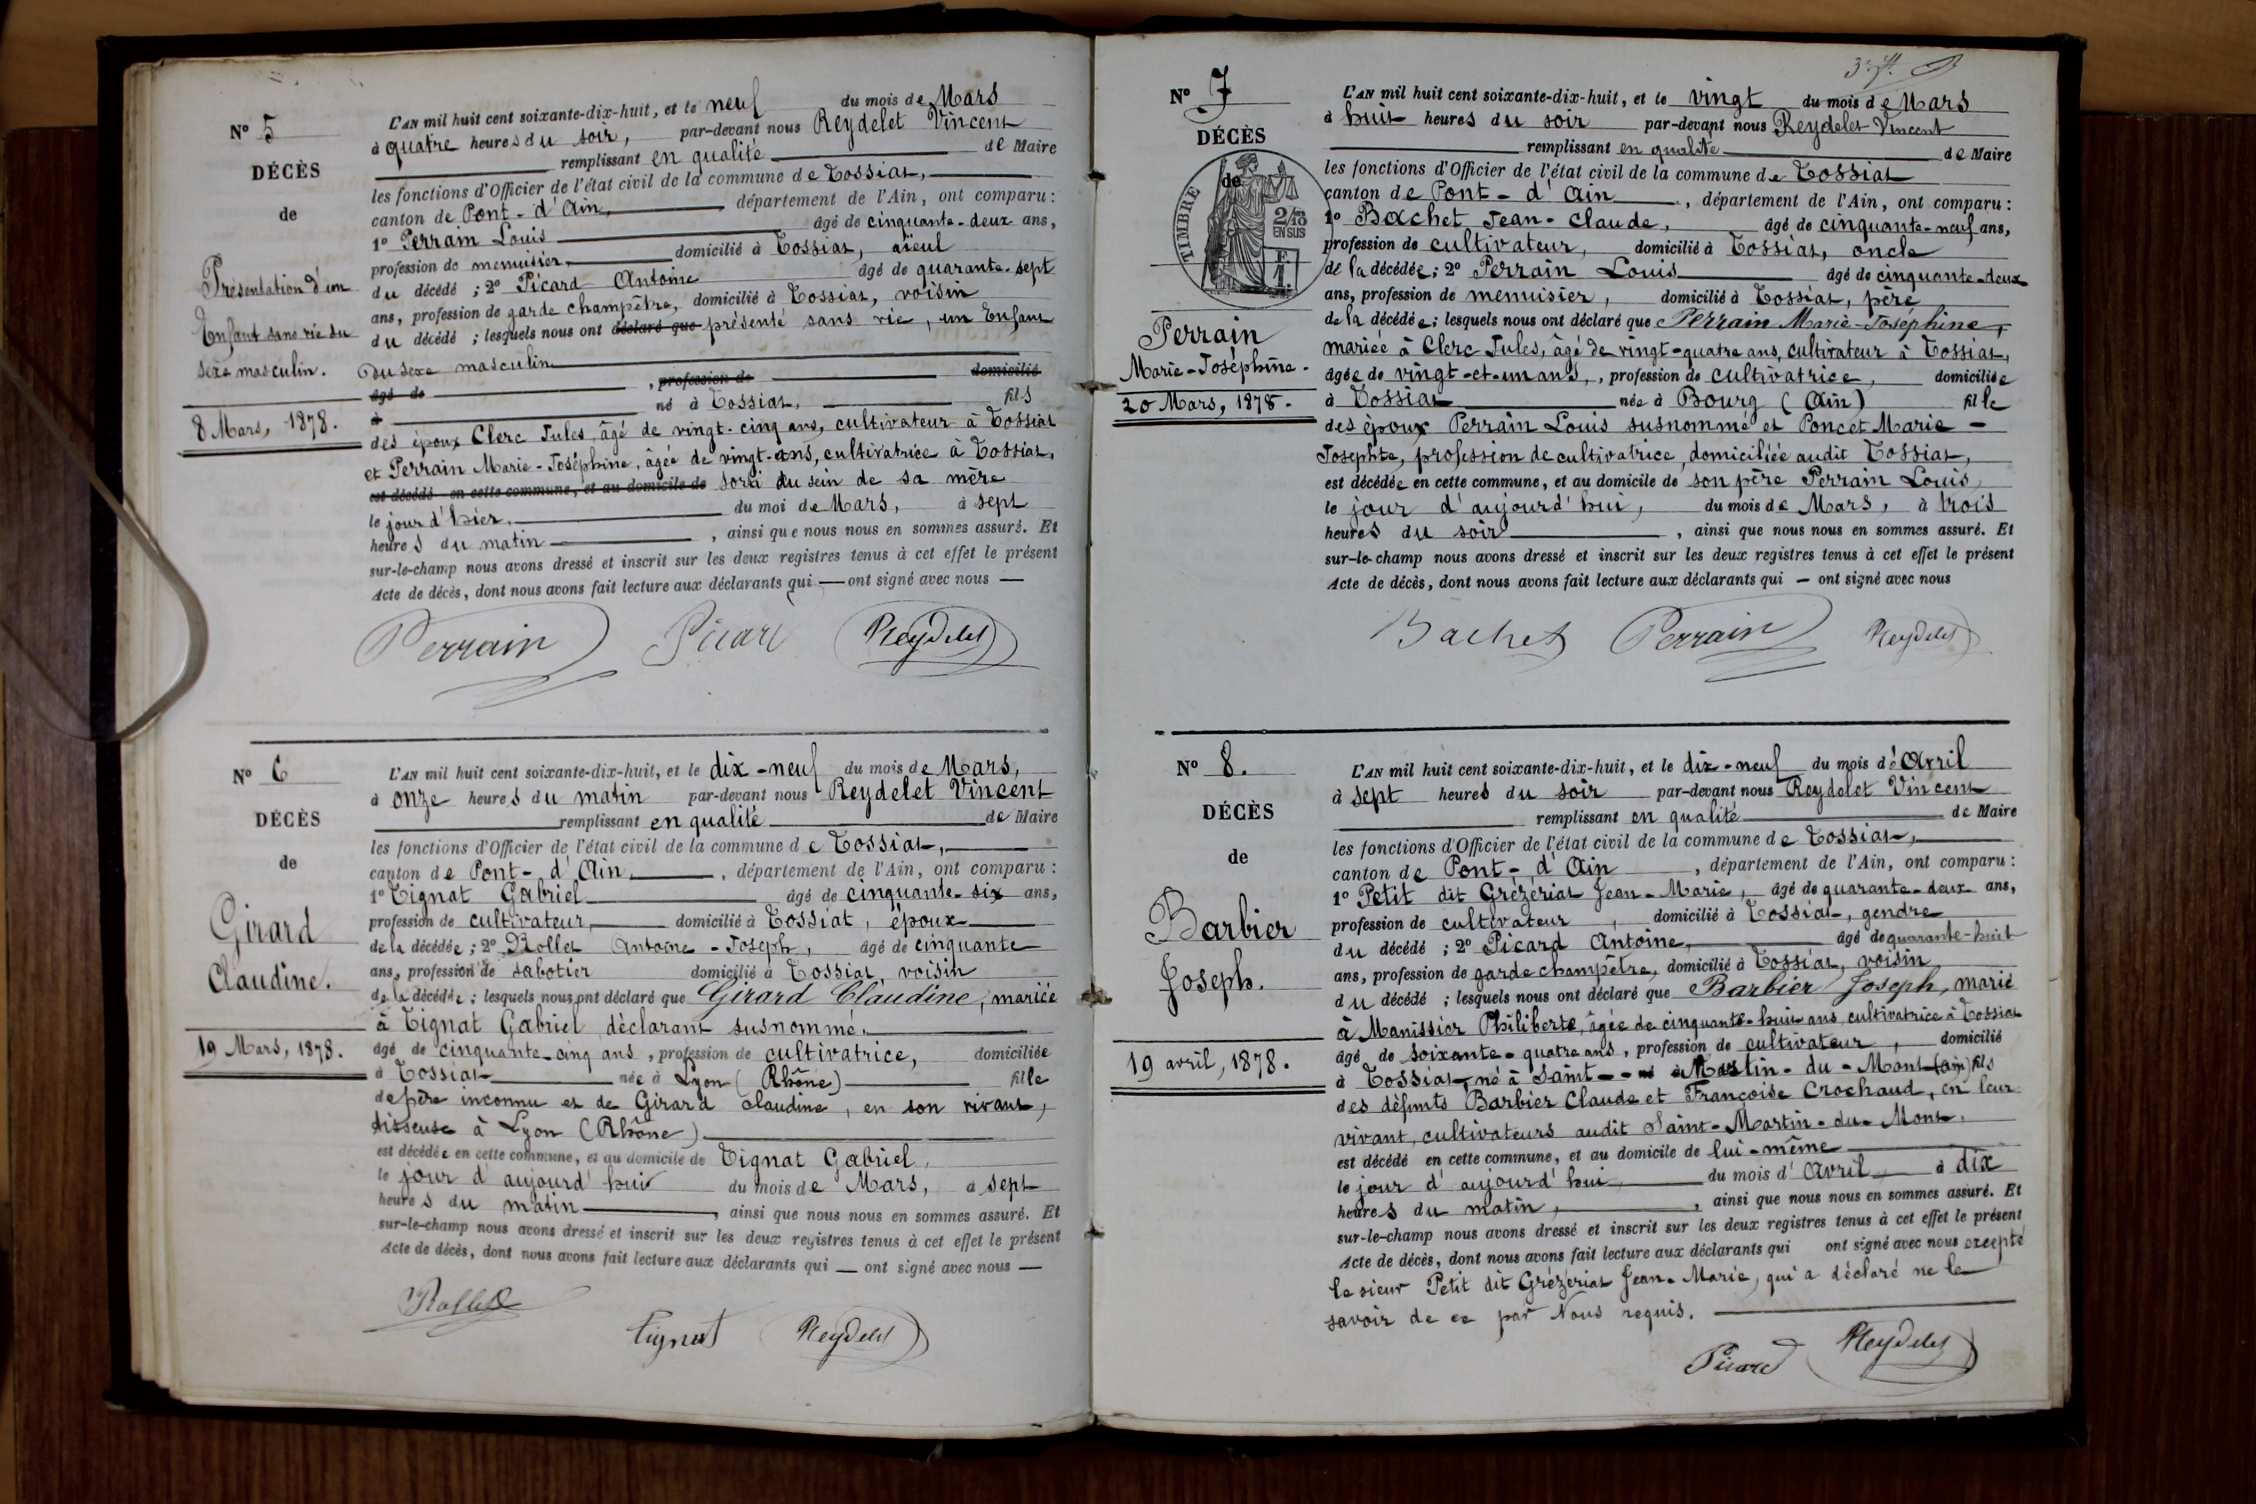 N° 5
DÉCÈS
de
Présentation d'un
Enfant sans vie du
sexe masculin.
8 Mars, 1878.
L'AN mil huit cent soixante-dix-huit, et le neuf du mois de Mars
à quatre heures du soir, par-devant nous Reydelet Vincent
remplissant en qualité de Maire
les fonctions d'Officier de l'état civil de la commune de Tossiat,
canton de Pont-d'Ain, département de l'Ain, ont comparu:
1° Perrain Louis âgé de cinquante-deux ans,
profession de menuisier, domicilié à Tossiat, aïeul
du décédé; 2° Picard Antoine âgé de quarante-sept
ans, profession de garde champêtre, domicilié à Tossiat, voisin
du décédé; lesquels nous ont déclaré que présenté sans vie, un Enfant
du sexe masculin
âgé de , profession de domicilié
à né à Tossiat, fils
des époux Clerc Jules, âgé de vingt-cinq ans, cultivateur à Tossiat
et Perrain Marie-Joséphine, âgée de vingt-ans, cultivatrice à Tossiat,
est décédé en cette commune, et au domicile de sorti du sein de sa mère
le jour d'hier, du moi de Mars, à sept
heures du matin , ainsi que nous nous en sommes assuré. Et
sur-le-champ nous avons dressé et inscrit sur les deux registres tenus à cet effet le présent
Acte de décès, dont nous avons fait lecture aux déclarants qui — ont signé avec nous —
Perrain Picard Reydelet
N° 6
DÉCÈS
de
Girard
Claudine.
19 Mars, 1878.
L'AN mil huit cent soixante-dix-huit, et le dix-neuf du mois de Mars,
à onze heures du matin par-devant nous Reydelet Vincent
remplissant en qualité de Maire
les fonctions d'Officier de l'état civil de la commune de Tossiat,
canton de Pont-d'Ain, département de l'Ain, ont comparu:
1° Tignat Gabriel âgé de cinquante-six ans,
profession de cultivateur, domicilié à Tossiat, époux
de la décédée; 2° Rollet Antoine-Joseph, âgé de cinquante
ans, profession de sabotier domicilié à Tossiat, voisin
de la décédée; lesquels nous ont déclaré que Girard Claudine, mariée
à Tignat Gabriel, déclarant susnommé,
âgé de cinquante-cinq ans, profession de cultivatrice, domiciliée
à Tossiat née à Lyon (Rhône) fille
de père inconnu et de Girard Claudine, en son vivant,
tisseuse à Lyon (Rhône)
est décédée en cette commune, et au domicile de Tignat Gabriel,
le jour d'aujourd'hui du mois de Mars, à sept
heures du matin , ainsi que nous nous en sommes assuré. Et
sur-le-champ nous avons dressé et inscrit sur les deux registres tenus à cet effet le présent
Acte de décès, dont nous avons fait lecture aux déclarants qui — ont signé avec nous —
Rollet
Tignat Reydelet
N° 7
DÉCÈS
de
TIMBRE
EN SUS
Perrain
Marie-Joséphine.
20 Mars, 1878.
L'AN mil huit cent soixante-dix-huit, et le vingt du mois de Mars
à huit heures du soir par-devant nous Reydelet Vincent
remplissant en qualité de Maire
les fonctions d'Officier de l'état civil de la commune de Tossiat
canton de Pont-d'Ain , département de l'Ain, ont comparu:
1° Bachet Jean-Claude, âgé de cinquante-neuf ans,
profession de cultivateur, domicilié à Tossiat, oncle
de la décédée; 2° Perrain Louis âgé de cinquante-deux
ans, profession de menuisier, domicilié à Tossiat, père
de la décédée; lesquels nous ont déclaré que Perrain Marie-Joséphine,
mariée à Clerc Jules, âgé de vingt-quatre ans, cultivateur à Tossiat,
âgée de vingt-et-un ans, profession de cultivatrice, domiciliée
à Tossiat née à Bourg (Ain) fille
des époux Perrain Louis susnommé et Poncet Marie-
Josephte, profession de cultivatrice, domiciliée audit Tossiat,
est décédée en cette commune, et au domicile de son père Perrain Louis
le jour d'aujourd'hui, du mois de Mars, à trois
heures du soir , ainsi que nous nous en sommes assuré. Et
sur-le-champ nous avons dressé et inscrit sur les deux registres tenus à cet effet le présent
Acte de décès, dont nous avons fait lecture aux déclarants qui — ont signé avec nous
Bachet Perrain Reydelet
N° 8.
DÉCÈS
de
Barbier
Joseph.
19 avril, 1878.
L'AN mil huit cent soixante-dix-huit, et le dix-neuf du mois d'Avril
à sept heures du soir par-devant nous Reydelet Vincent
remplissant en qualité de Maire
les fonctions d'Officier de l'état civil de la commune de Tossiat,
canton de Pont-d'Ain , département de l'Ain, ont comparu:
1° Petit dit Grézériat Jean-Marie, âgé de quarante-deux ans,
profession de cultivateur, domicilié à Tossiat, gendre
du décédé; 2° Picard Antoine, âgé de quarante-huit
ans, profession de garde champêtre, domicilié à Tossiat, voisin
du décédé; lesquels nous ont déclaré que Barbier Joseph, marié
à Manissier Philiberte, âgée de cinquante-huit ans, cultivatrice à Tossiat
âgé de soixante-quatre ans, profession de cultivateur, domicilié
à Tossiat, né à Saint-Martin-du-Mont (ain) fils
des défunts Barbier Claude et Françoise Crochaud, en leur
vivant, cultivateurs audit Saint-Martin-du-Mont,
est décédé en cette commune, et au domicile de lui-même
le jour d'aujourd'hui du mois d'Avril à dix
heures du matin, , ainsi que nous nous en sommes assuré. Et
sur-le-champ nous avons dressé et inscrit sur les deux registres tenus à cet effet le présent
Acte de décès, dont nous avons fait lecture aux déclarants qui ont signé avec nous excepté
le sieur Petit dit Grézeriat Jean-Marie, qui a déclaré ne le
savoir de ce par Nous requis.
Picard Reydelet